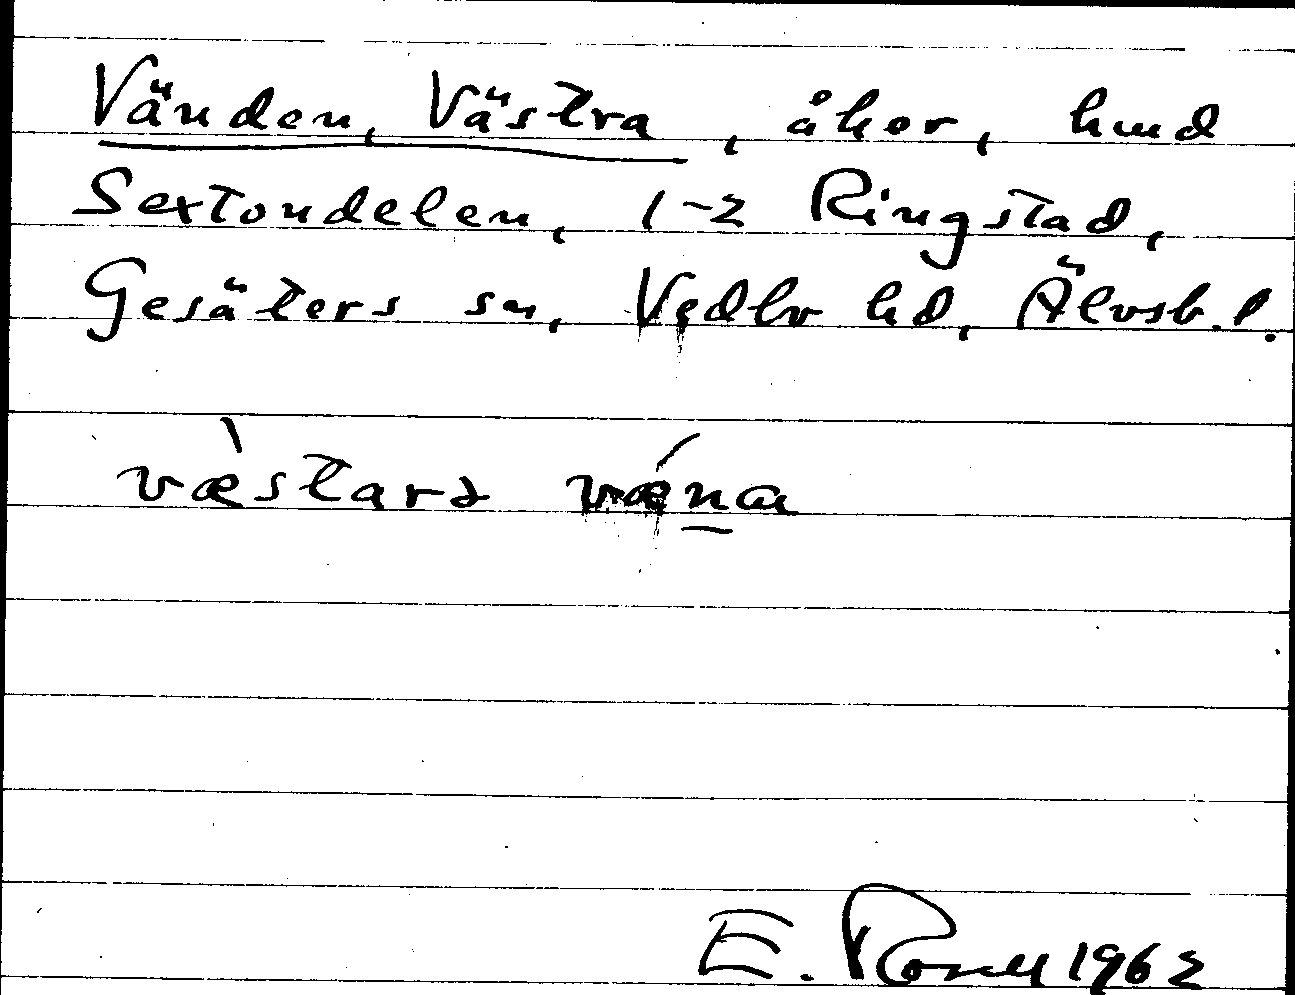 Vänden, Västra, åker, hmd
Sextondelen, 1-2 Ringstad,
Gesäters sn, Vedbo hd, Älvsb. l.
væstarə væna
E. 1962